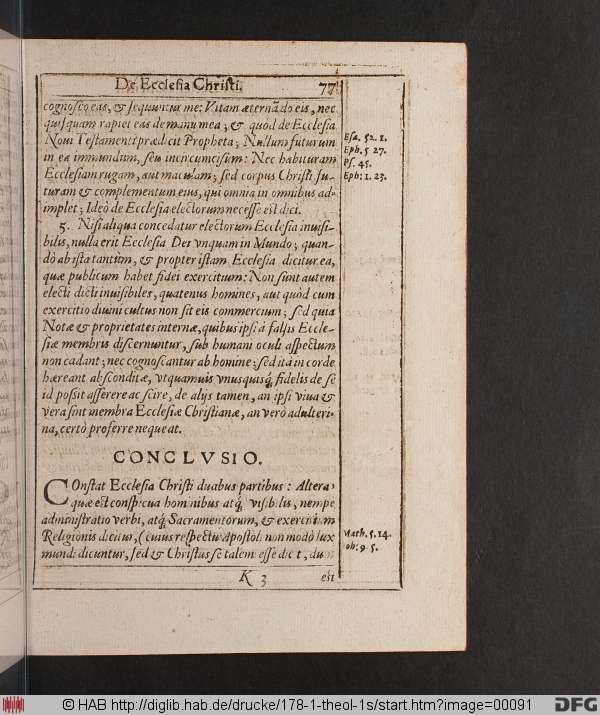 De Ecclesia Christi. 77
cognosco eas, & sequuntur me: Vitam æternã do eis, nec
quisquam rapiet eas de manu mea; & quòd de Ecclesia
Noui Testamenti prædicit Propheta; Nullum futurum
in ea immundum, seu incircumcisum: Nec habituram
Ecclesiam rugam, aut maculam; sed corpus Christi fu-
turam & complementum eius, qui omnia in omnibus ad-
implet; Ideò de Ecclesia electorum necesse est dici.
5. Nisi aliqua concedatur electorum Ecclesia inuisi-
bilis, nulla erit Ecclesia Dei vnquam in Mundo; quan-
dò ab ista tantùm, & propter istam Ecclesia dicitur ea,
quæ publicum habet fidei exercitium: Non sunt autem
electi dicti inuisibiles, quatenus homines, aut quòd cum
exercitio diuini cultus non sit eis commercium; sed quia
Notæ & proprietates internæ, quibus ipsi à falsis Eccle-
siæ membris discernuntur, sub humani oculi aspectum
non cadant; nec cognoscantur ab homine; sed ita in corde
hæreant absconditæ, vt quamuis vnusquisq; fidelis de se
id possit asserere ac scire, de alijs tamen, an ipsi viua &
vera sint membra Ecclesiæ Christianæ, an verò adulteri-
na, certò proferre nequeat.
CONCLVSIO.
COnstat Ecclesia Christi duabus partibus: Altera
quæ est conspicua hominibus atq; visibilis, nempe
administratio verbi, atq; Sacramentorum, & exercitium
Religionis dicitur, (cuius respectu Apostoli non modò lux
mundi dicuntur, sed & Christus se talem esse dicit, dum
K 3 est
Esa. 52. 1.
Eph. 5 27.
Ps. 45.
Eph: 1. 23.
Math. 5. 14.
Ioh: 9 5.
© HAB http://diglib.hab.de/drucke/178-1-theol-1s/start.htm?image=00091
DFG